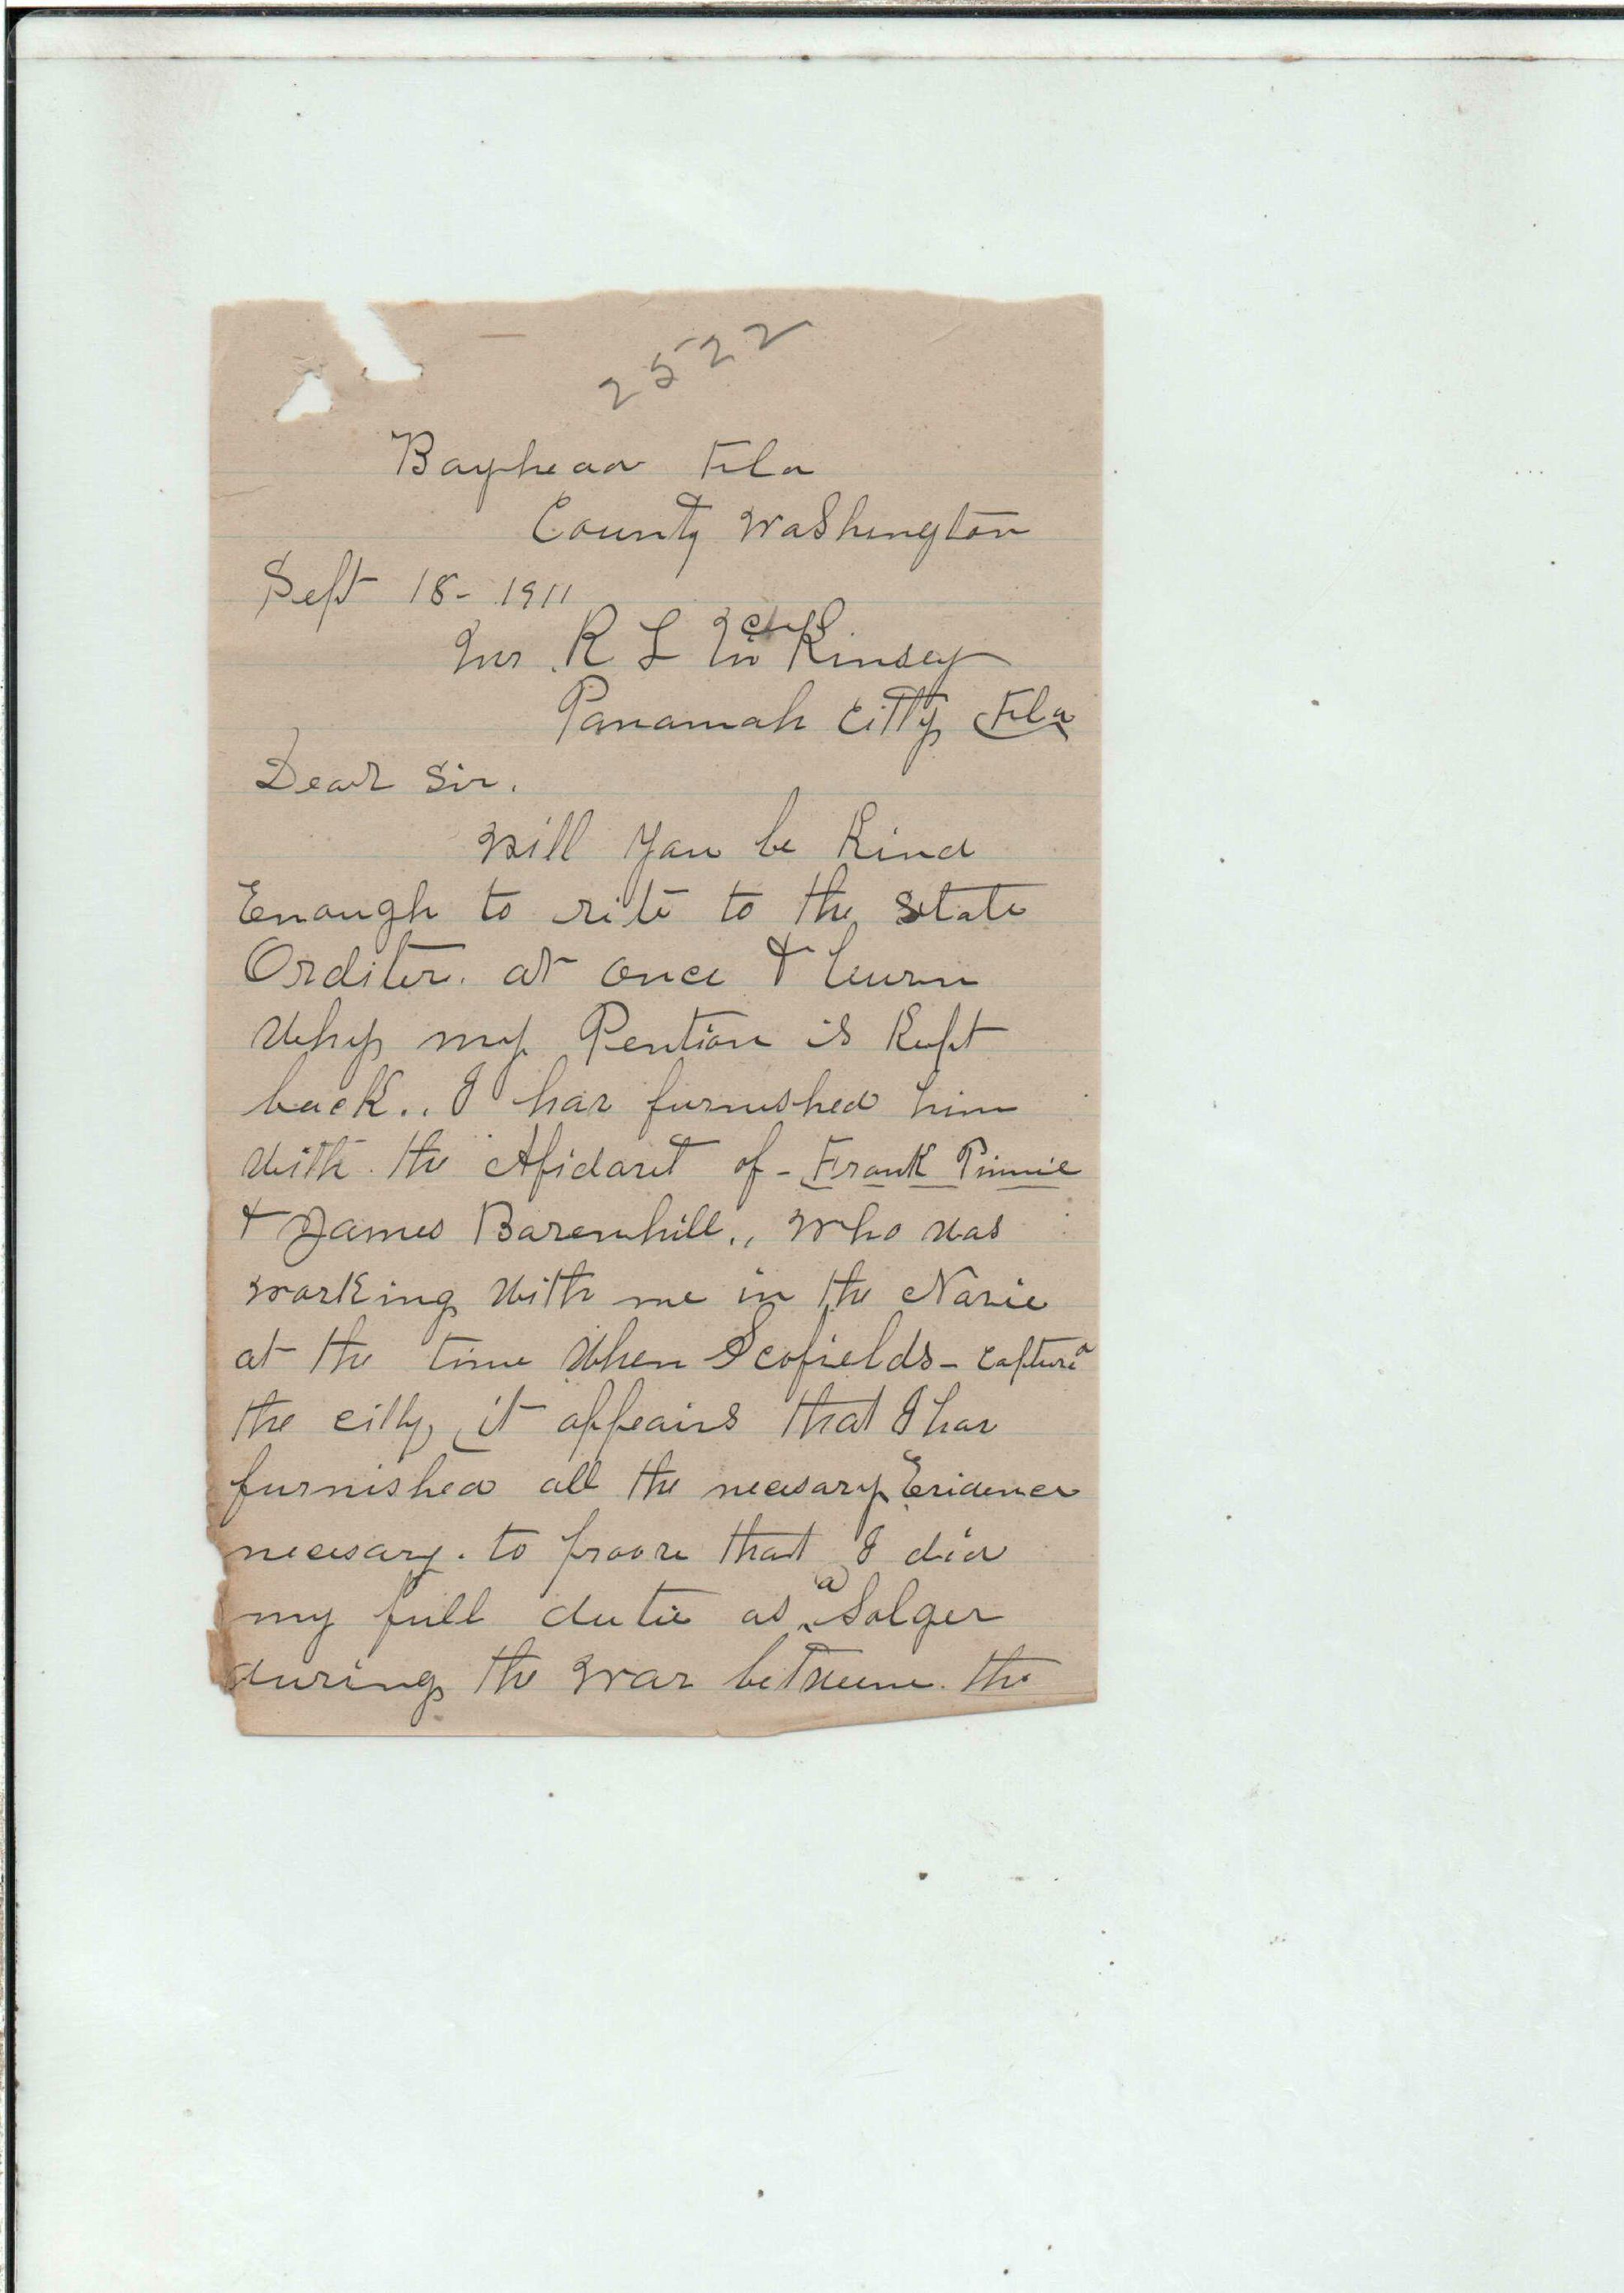 2522
Bayhead Fla
County Washington
Sept 18 - 1911
Mr. R L McKinsey
Panamah Citty Fla
Dear Sir.
Will you be Kind
Enough to rite to the State
Orditer. at once & lurn
Why my Pention is Kept
back.. I hav furnished him
with the Afidavit of - Frank Pinnie
& James Barenhill., who was
working with me in the Navie
at the time when Scofields - captured
the citty, it appears that I hav
furnished all the necesary Evidence
necesary. to proove that I did
my full dutie as a Solger
during the war betweene. the